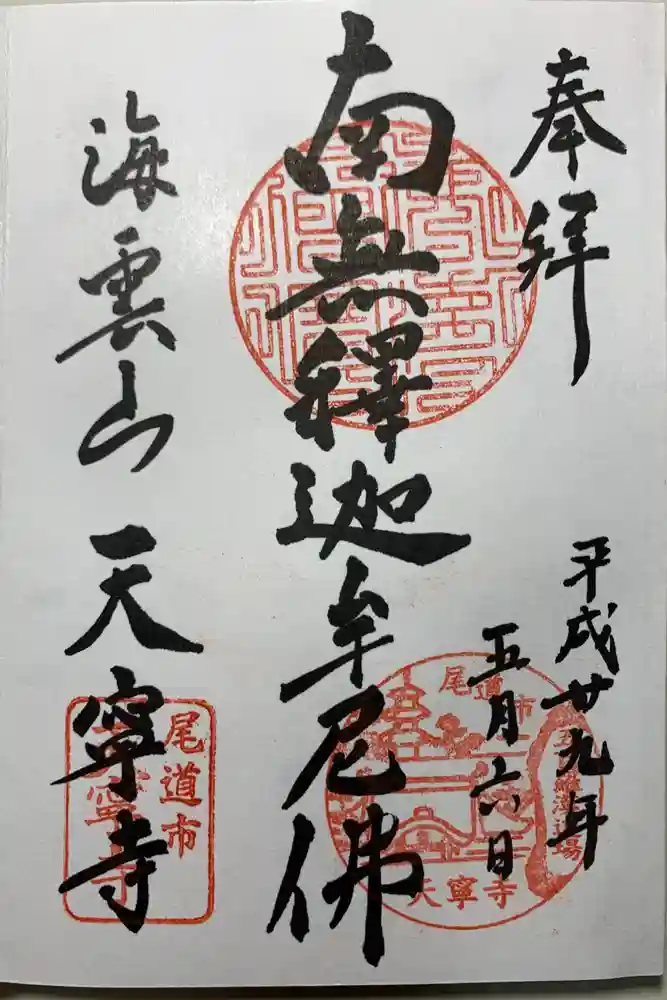 奉拝
平成廿九年
五月六日
南無釋迦牟尼佛
海雲山 天寧寺
尾道市
天寧寺
尾道市